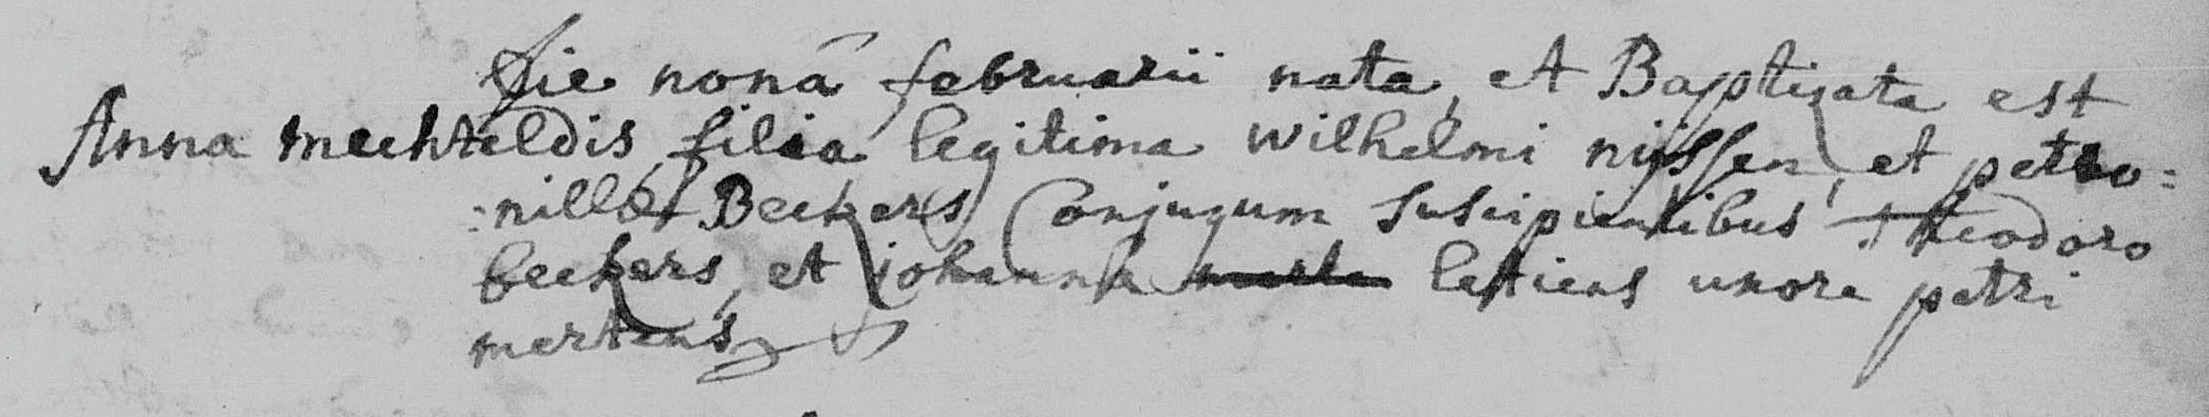 Die nonâ februarii nata, et Baptizata est
Anna mechteldis filia legitima wilhelmi nijssen, et petro=
=nillæ Beckers Conjugum suscipientibus Theodoro
beckers, et johanna uxore petri
mertens